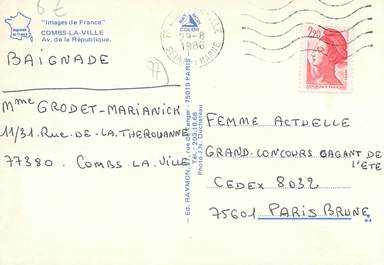 6 €
"Images de France"
COMBS-LA-VILLE
Av. de la République.
BAIGNADE
77
Mme GRODET-MARIANICK
11/31.RUE-DE-LA-THEROUANNE
77380 - COMBS.LA.VILLE
Ed. RAYMON, rue d'Angers - 75019 PARIS - Tél.: 203.10.68
Photo J.N. Duchateau
RAYMON
COLOR
VILLE
29-8
1986
SEINE ET MARNE
2,20
FEMME ACTUELLE
GRAND-CONCOURS GAGANT DE
L'ETE
CEDEX 8032
75601 PARIS BRUNE